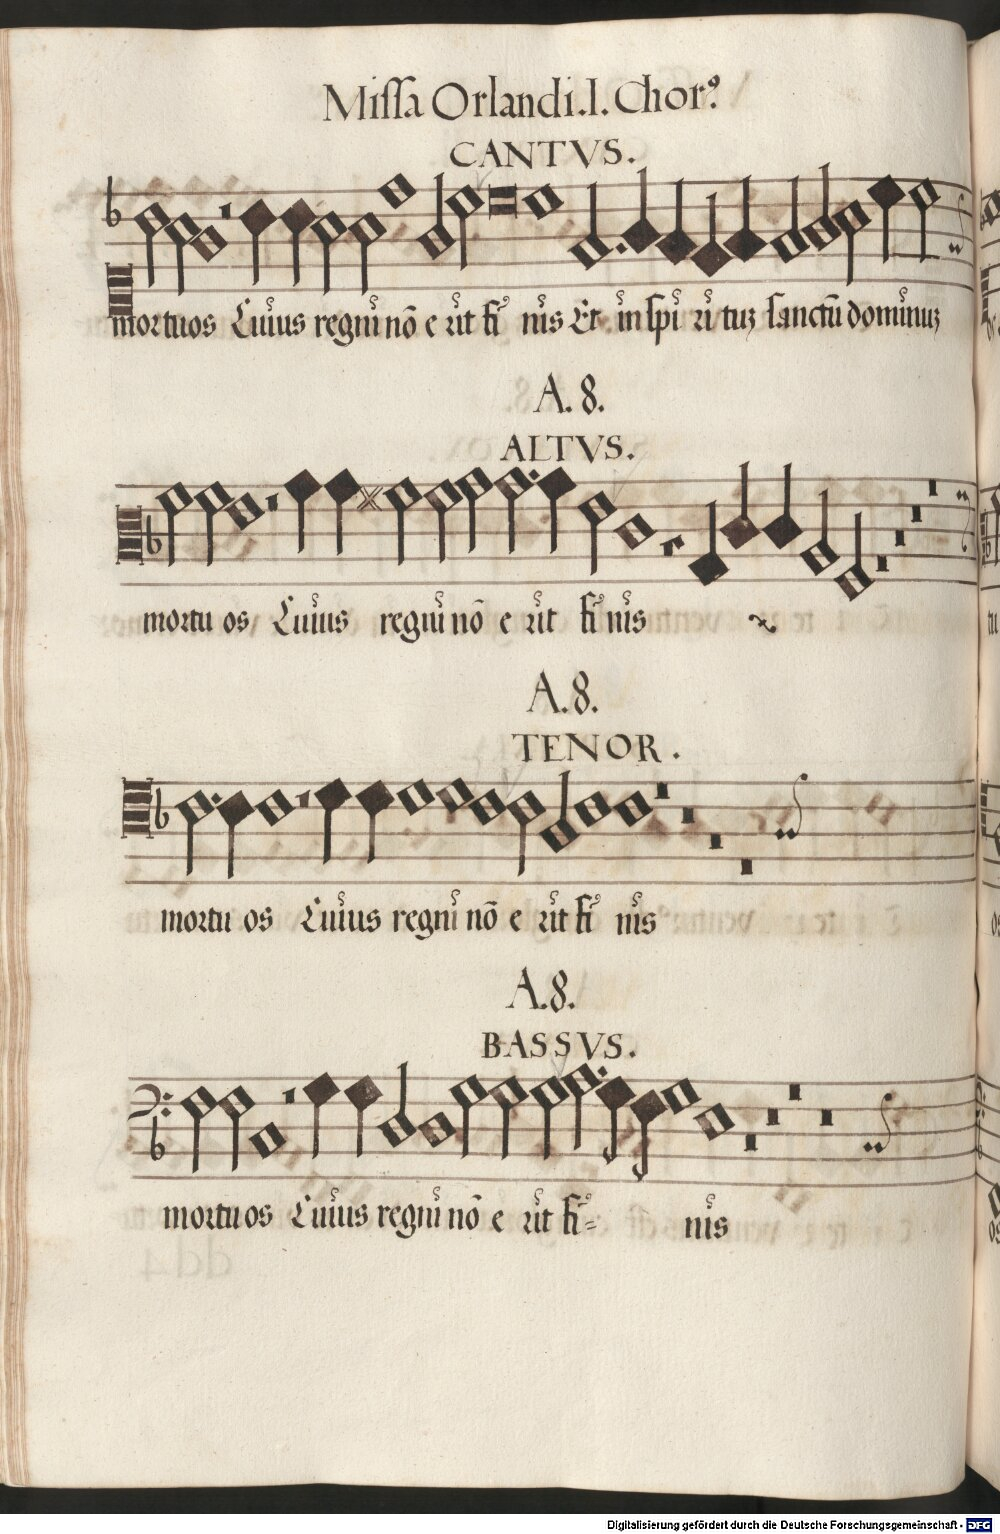 Missa Orlandi. I. Chorꝰ.
CANTVS.
mortuos Cuius regni nō e rit fi nis Et in spi ri tuz sanctū dominuz
A. 8.
ALTVS.
mortu os Cuius regni nō e rit fi nis
A. 8.
TENOR.
mortu os Cuius regni nō e rit fi nis
A. 8.
BASSVS.
mortuos Cuius regni nō e rit fi= nis
Digitalisierung gefördert durch die Deutsche Forschungsgemeinschaft - DFG